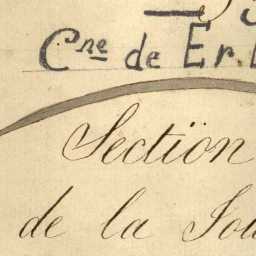 Cne de Er.
Section
de la